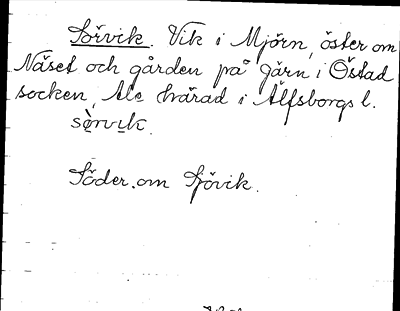 Sörvik. Vik i Mjörn, öster om
Näset och gården på Gärn i Östad
socken, Ale härad i Älfsborgs l.
sø̀rvɩk.
Söder om Sjövik.